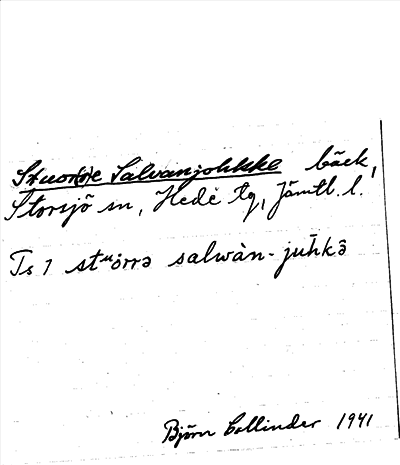 Stuor(r)e Salvanjohkke bäck,
Storsjö sn, Hede tg, Jämtl. l.
Ts 1 stᵘörrə salwàn-juhkə̂
Björn Collinder 1941